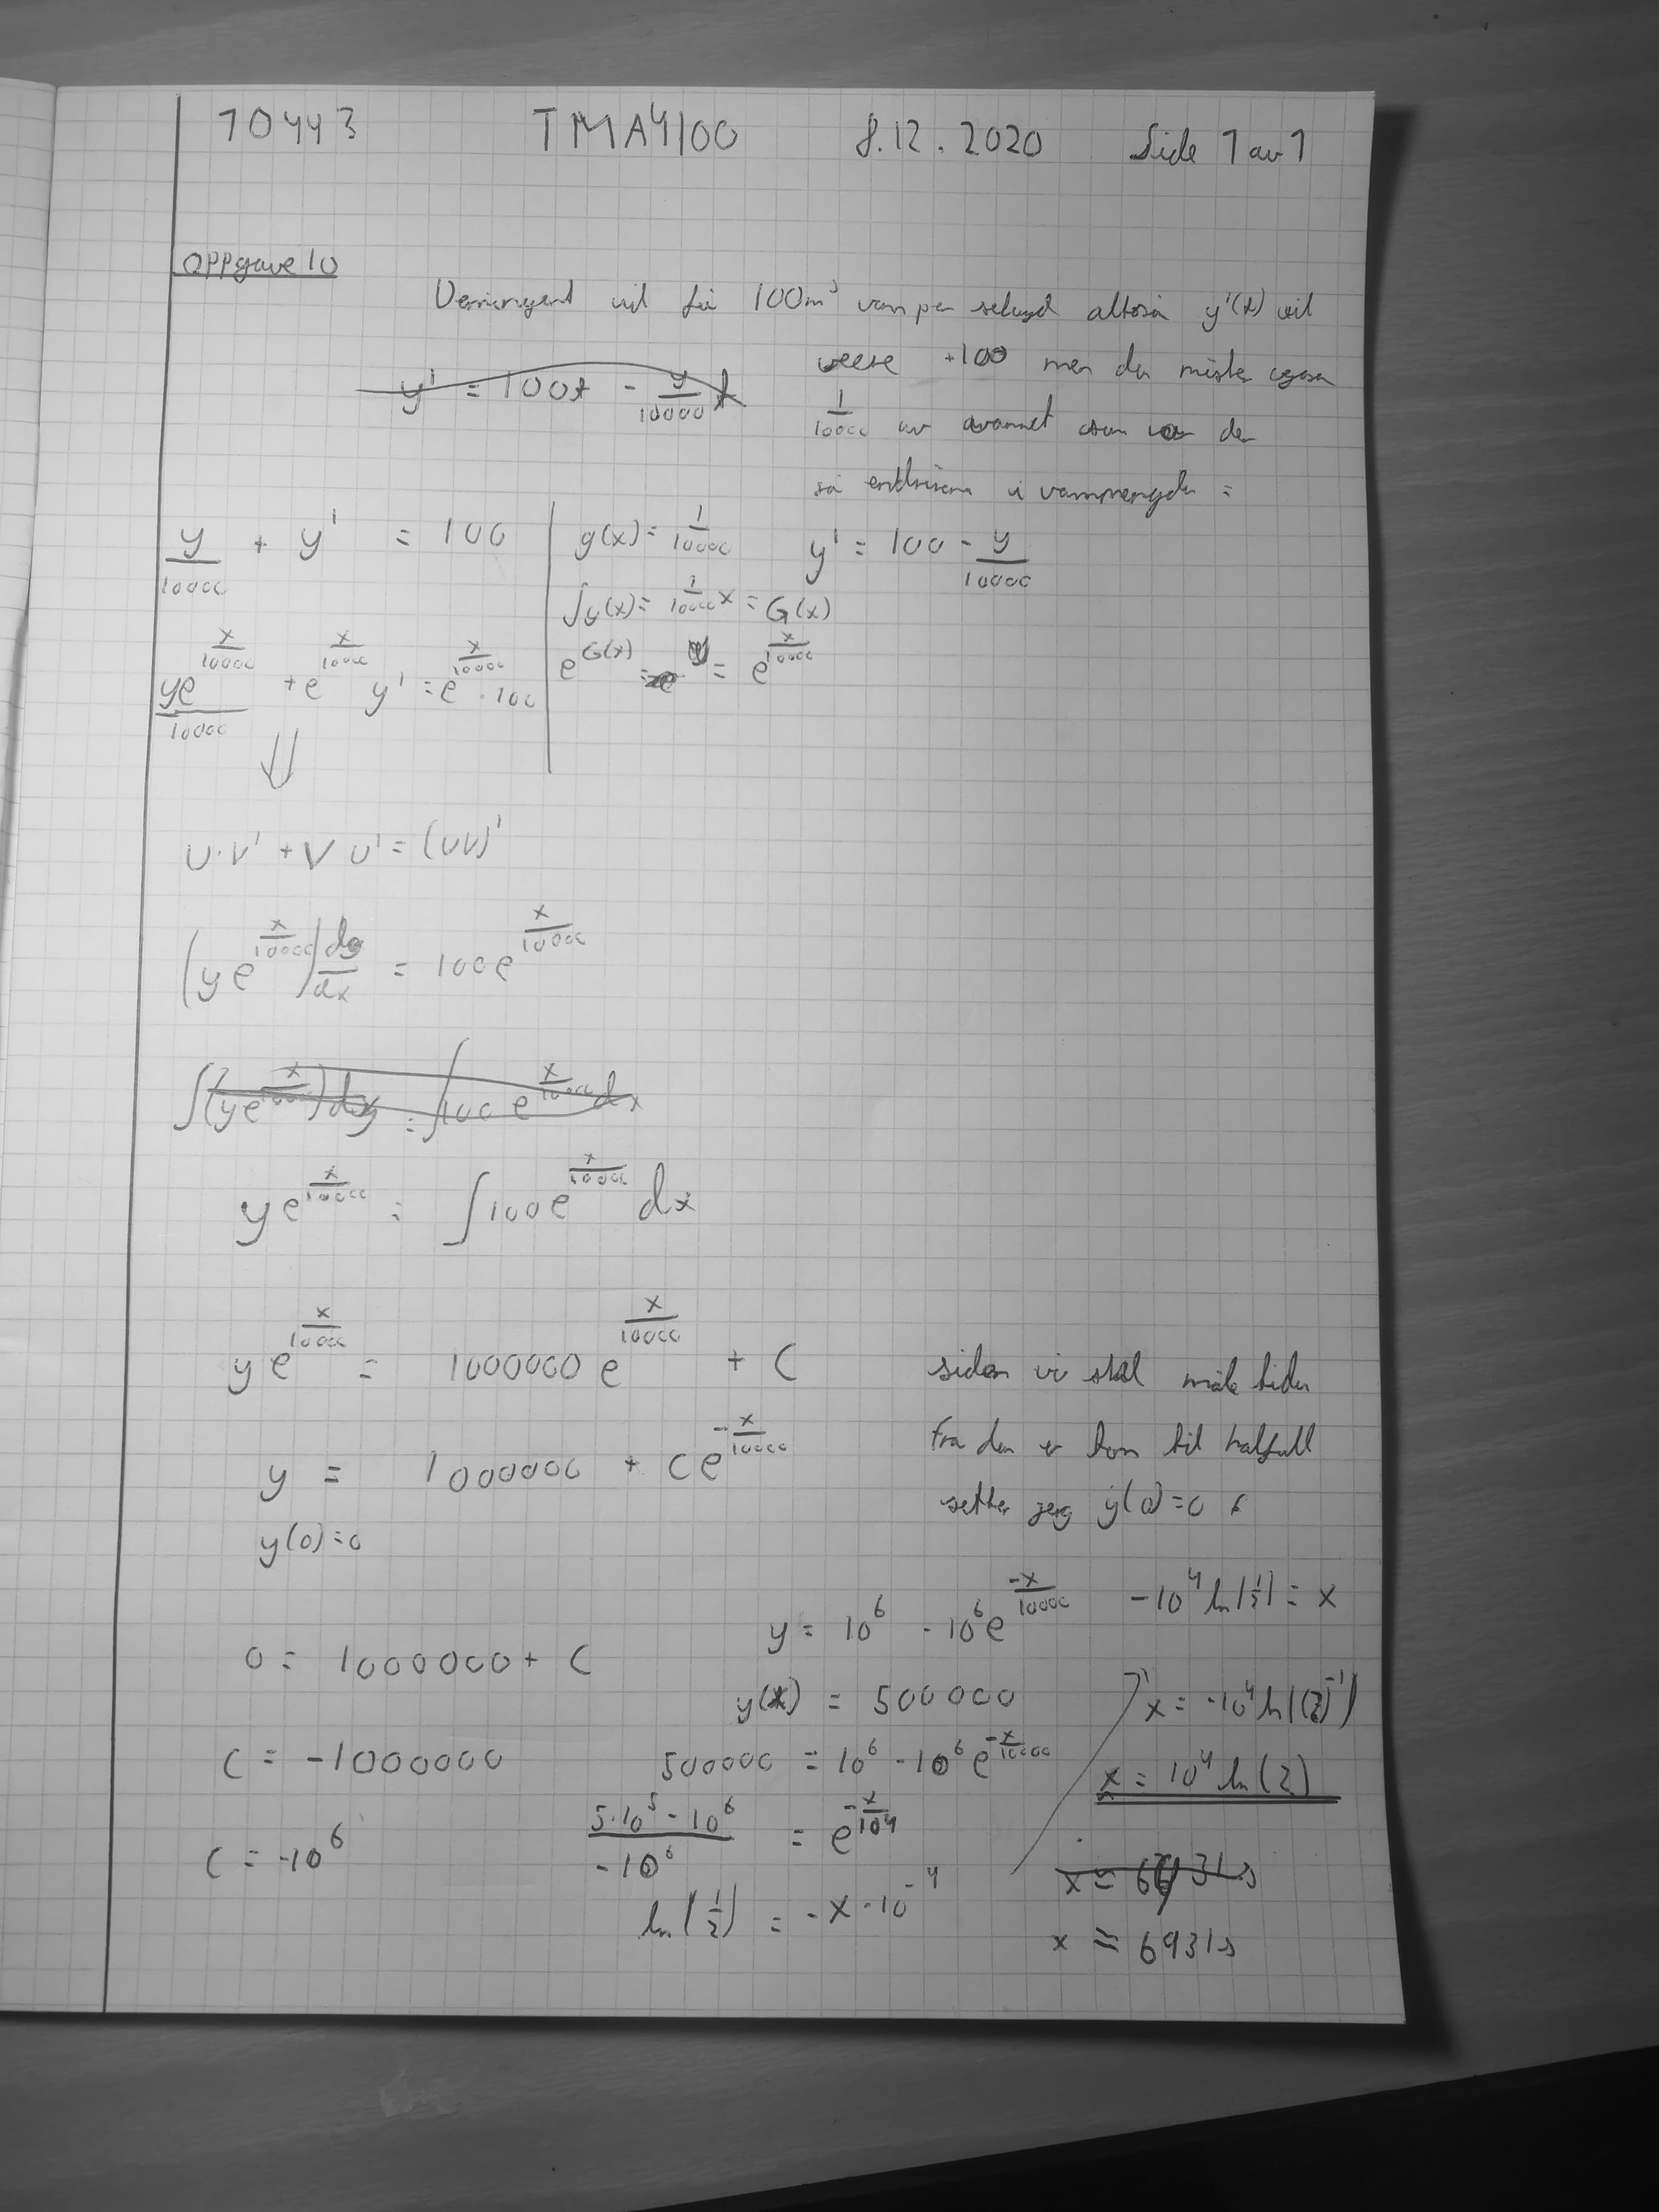 10443 TMA4100 8.12.2020 Side 1 av 1
Oppgave 10
vil få 100m³ vann per altså y'(x) vil
være +100 men den mister også
y' = 100x - y/10000 x
1/10000 av vannet som var der
så endringen i vannmengden =
y/10000 + y' = 100
g(x) = 1/10000
y' = 100 - y/10000
∫g(x) = 1/10000 x = G(x)
e^G(x) = e^(x/10000)
ye^(x/10000)/10000 + e^(x/10000) y' = e^(x/10000) · 100
⇓
U·V' + V U' = (UV)'
(ye^(x/10000)) dy/dx = 100e^(x/10000)
∫(ye^(x/10000))dy = ∫100 e^(x/10000) dx
ye^(x/10000) = ∫100e^(x/10000) dx
ye^(x/10000) = 1000000 e^(x/10000) + C
y = 1000000 + Ce^(-x/10000)
y(0)=0
siden vi skal måle tiden
Fra den er tom til halvfull
setter jeg y(0)=0
0 = 1000000 + C
C = -1000000
C = -10⁶
y = 10⁶ - 10⁶e^(-x/10000)
y(x) = 500000
500000 = 10⁶ - 10⁶ e^(-x/10000)
(5·10⁵ - 10⁶)/(-10⁶) = e^(-x/10⁴)
ln(1/2) = -x·10⁻⁴
-10⁴ ln(1/2) = x
x = -10⁴ ln((2)⁻¹)
x = 10⁴ ln(2)
x ≈ 6931s